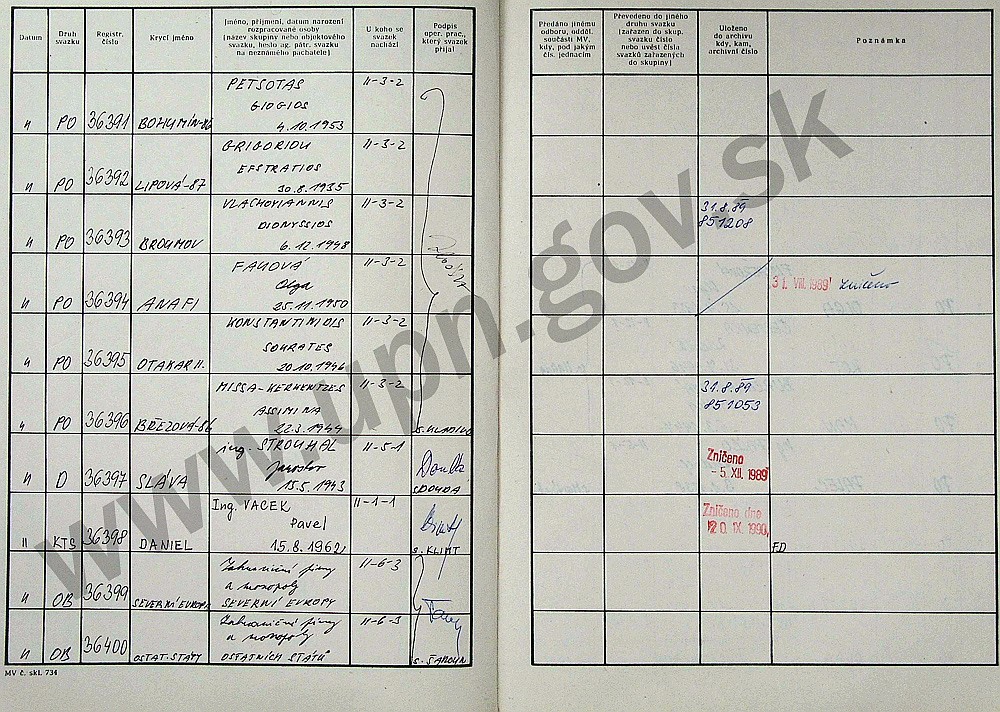 Datum
Druh
svazku
Registr.
číslo
Krycí jméno
Jméno, příjmení, datum narození
rozpracované osoby
(název skupiny nebo objektového
svazku, heslo ag. pátr. svazku
na neznámého pachatele)
U koho se
svazek
nachází
Podpis
oper. prac.,
který svazek
přijal
Předáno jinému
odboru, odděl.
součásti MV,
kdy, pod jakým
čís. jednacím
Převedeno do jiného
druhu svazku
(zařazen do skup.
svazku číslo
nebo uvést čísla
svazků zařazených
do skupiny)
Uloženo
do archivu
kdy, kam,
archivní číslo
Poznámka
PETSOTAS II-3-2
GIOGIOS
" PO 36391 BOHUMÍN-86 4.10.1953
GRIGORIOU II-3-2
EFSTRATIOS
" PO 36392 LIPOVÁ-87 30.8.1935
VLACHOYIANNIS II-3-2 31.8.89
DIONYSSIOS 851208
" PO 36393 BROUMOV 6.12.1948
II-3-2
Olga 31. VIII. 1989 zničeno
" PO 36394 ANAFI 25.11.1950
KONSTANTINIDIS II-3-2
SOKRATES
" PO 36395 OTAKAR II. 20.10.1946
MISSA-KERHENTZES II-3-2 31.8.89
ASSIMINA 851053
" PO 36396 BŘEZOVÁ-86 22.3.1944
ing. STROUHAL II-5-1 Zničeno
Jaroslav - 5. XII. 1989
" D 36397 SLÁVA 15.5.1943
Ing. VACEK II-1-1 Zničeno dne
Pavel 20. IX. 1990
" KTS 36398 DANIEL 15.8.1962 s. KLIMT F.D
Zahraniční firmy II-6-3
a monopoly
" OB 36399 SEVERNÍ EVROPA SEVERNÍ EVROPY
Zahraniční firmy II-6-3
a monopoly
" OB 36400 OSTAT. STÁTY OSTATNÍCH STÁTŮ
MV č. skl. 734
www.upn.gov.sk